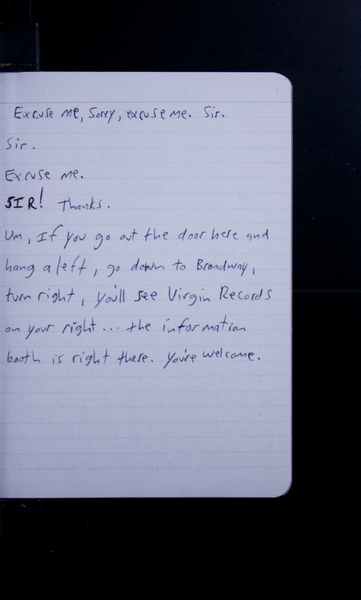 Excuse me, Sorry, excuse me. Sir.
Sir.
Excuse me.
SIR! Thanks.
Um, If you go out the door here and
hang a left, go down to Broadway,
turn right, you'll see Virgin Records
on your right... the information
booth is right there. You're welcome.